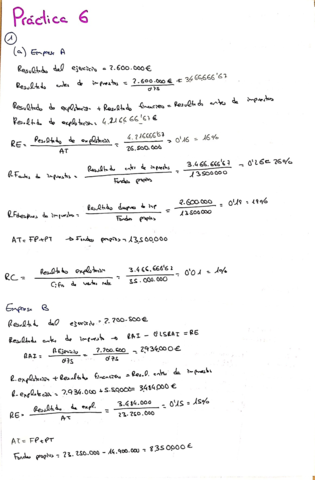 Práctica 6
1
(a) Empresa A
Resultado del ejercicio = 2.600.000€
Resultado antes de impuestos = 2.600.000€ / 0'75 = 3466666'67
Resultado de explotación + Resultado financiero = Resultado antes de impuestos
Resultado de explotación = 4.216666'67€
RE = Resultado de explotación / AT = 4.216666'67 / 26.500.000 = 0'15 = 15%
R.F antes de impuestos = Resultado antes de impuestos / Fondos propios = 3.466.666'67 / 13500000 = 0'26 = 26%
R.F después de impuestos = Resultado después de imp / Fondos propios = 2.600.000 / 13.500.000 = 0'19 = 19%
AT = FP + PT → Fondos propios = 13,500,000
RC = Resultado explotación / Cifra de ventas neta = / 35.000.000 = 0'01 = 1%
Empresa B
Resultado del ejercicio = 2.200.500€
Resultado antes de impuesto → RAI - 0'25RAI = RE
RAI = / 0'75 = / 0'75 = 2934000€
R. explotación + Resultado financiero = Result. antes de impuestos
R. explotación = 2.934.000 + = €
RE = Resultado de expl. / AT = / 23.250.000 = 0'15 = 15%
AT = FP + PT
Fondos propios = 23.250.000 - = €